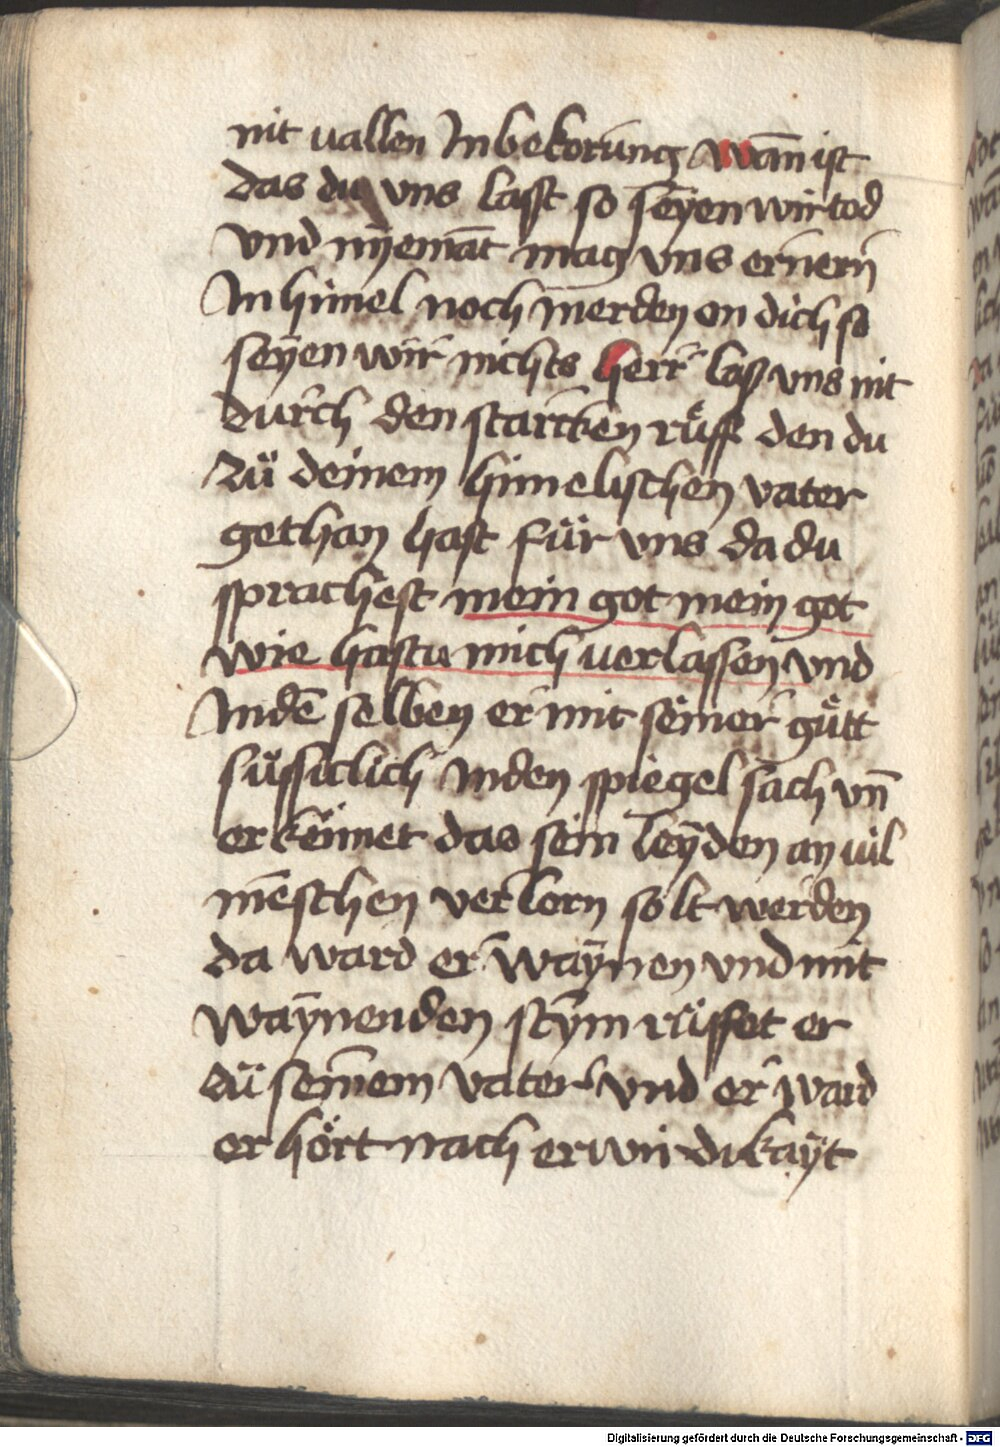 nit uallen Inbekorung wān ist
das du vns lasst so seyen wir tod
vnd nyemāt mag vns ernern
In himel noch in erden on dich so
seyen wir nichts herr lass vns nit
durch den starcken rüff den du
zü deinem himelischen vater
gethan hast für vns da du
sprachest mein got mein got
wie hastu mich uerlassen vnd
Indē selben er mit seiner gütt
süssiclich In den spiegel sach vn̄
erkennet das sein leyden an uil
mēschen verlorn solt werden
da ward er waynen vnd mit
waynenden stym rüffet er
zü seinem vater vnd er ward
erhört nach erwirdikayt
Digitalisierung gefördert durch die Deutsche Forschungsgemeinschaft - DFG